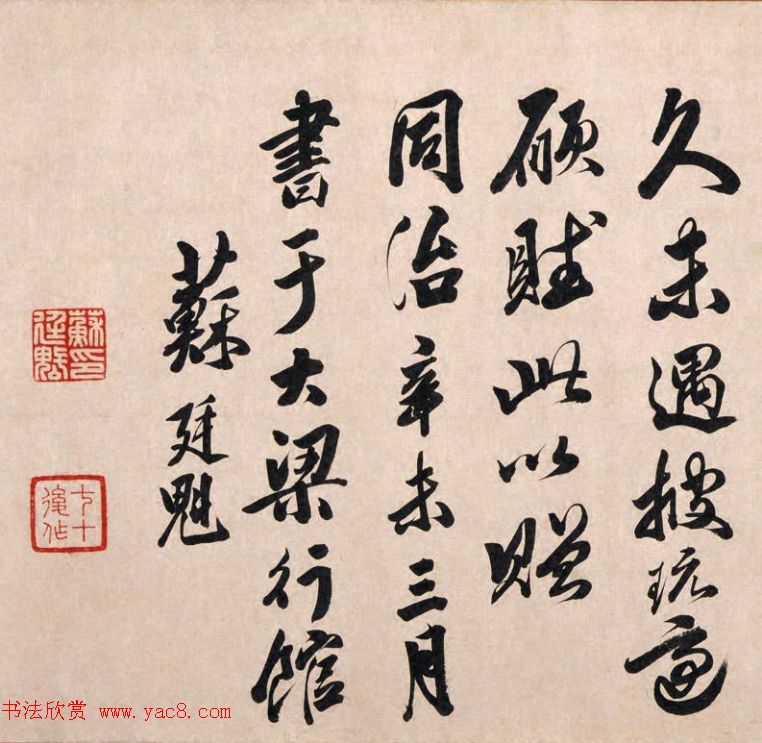 久未遇披玩適
願賦此以贈
同治辛未三月
書于大梁行館
蘇廷魁
蘇印
廷魁
七十
後作
书法欣赏 www.yac8.com